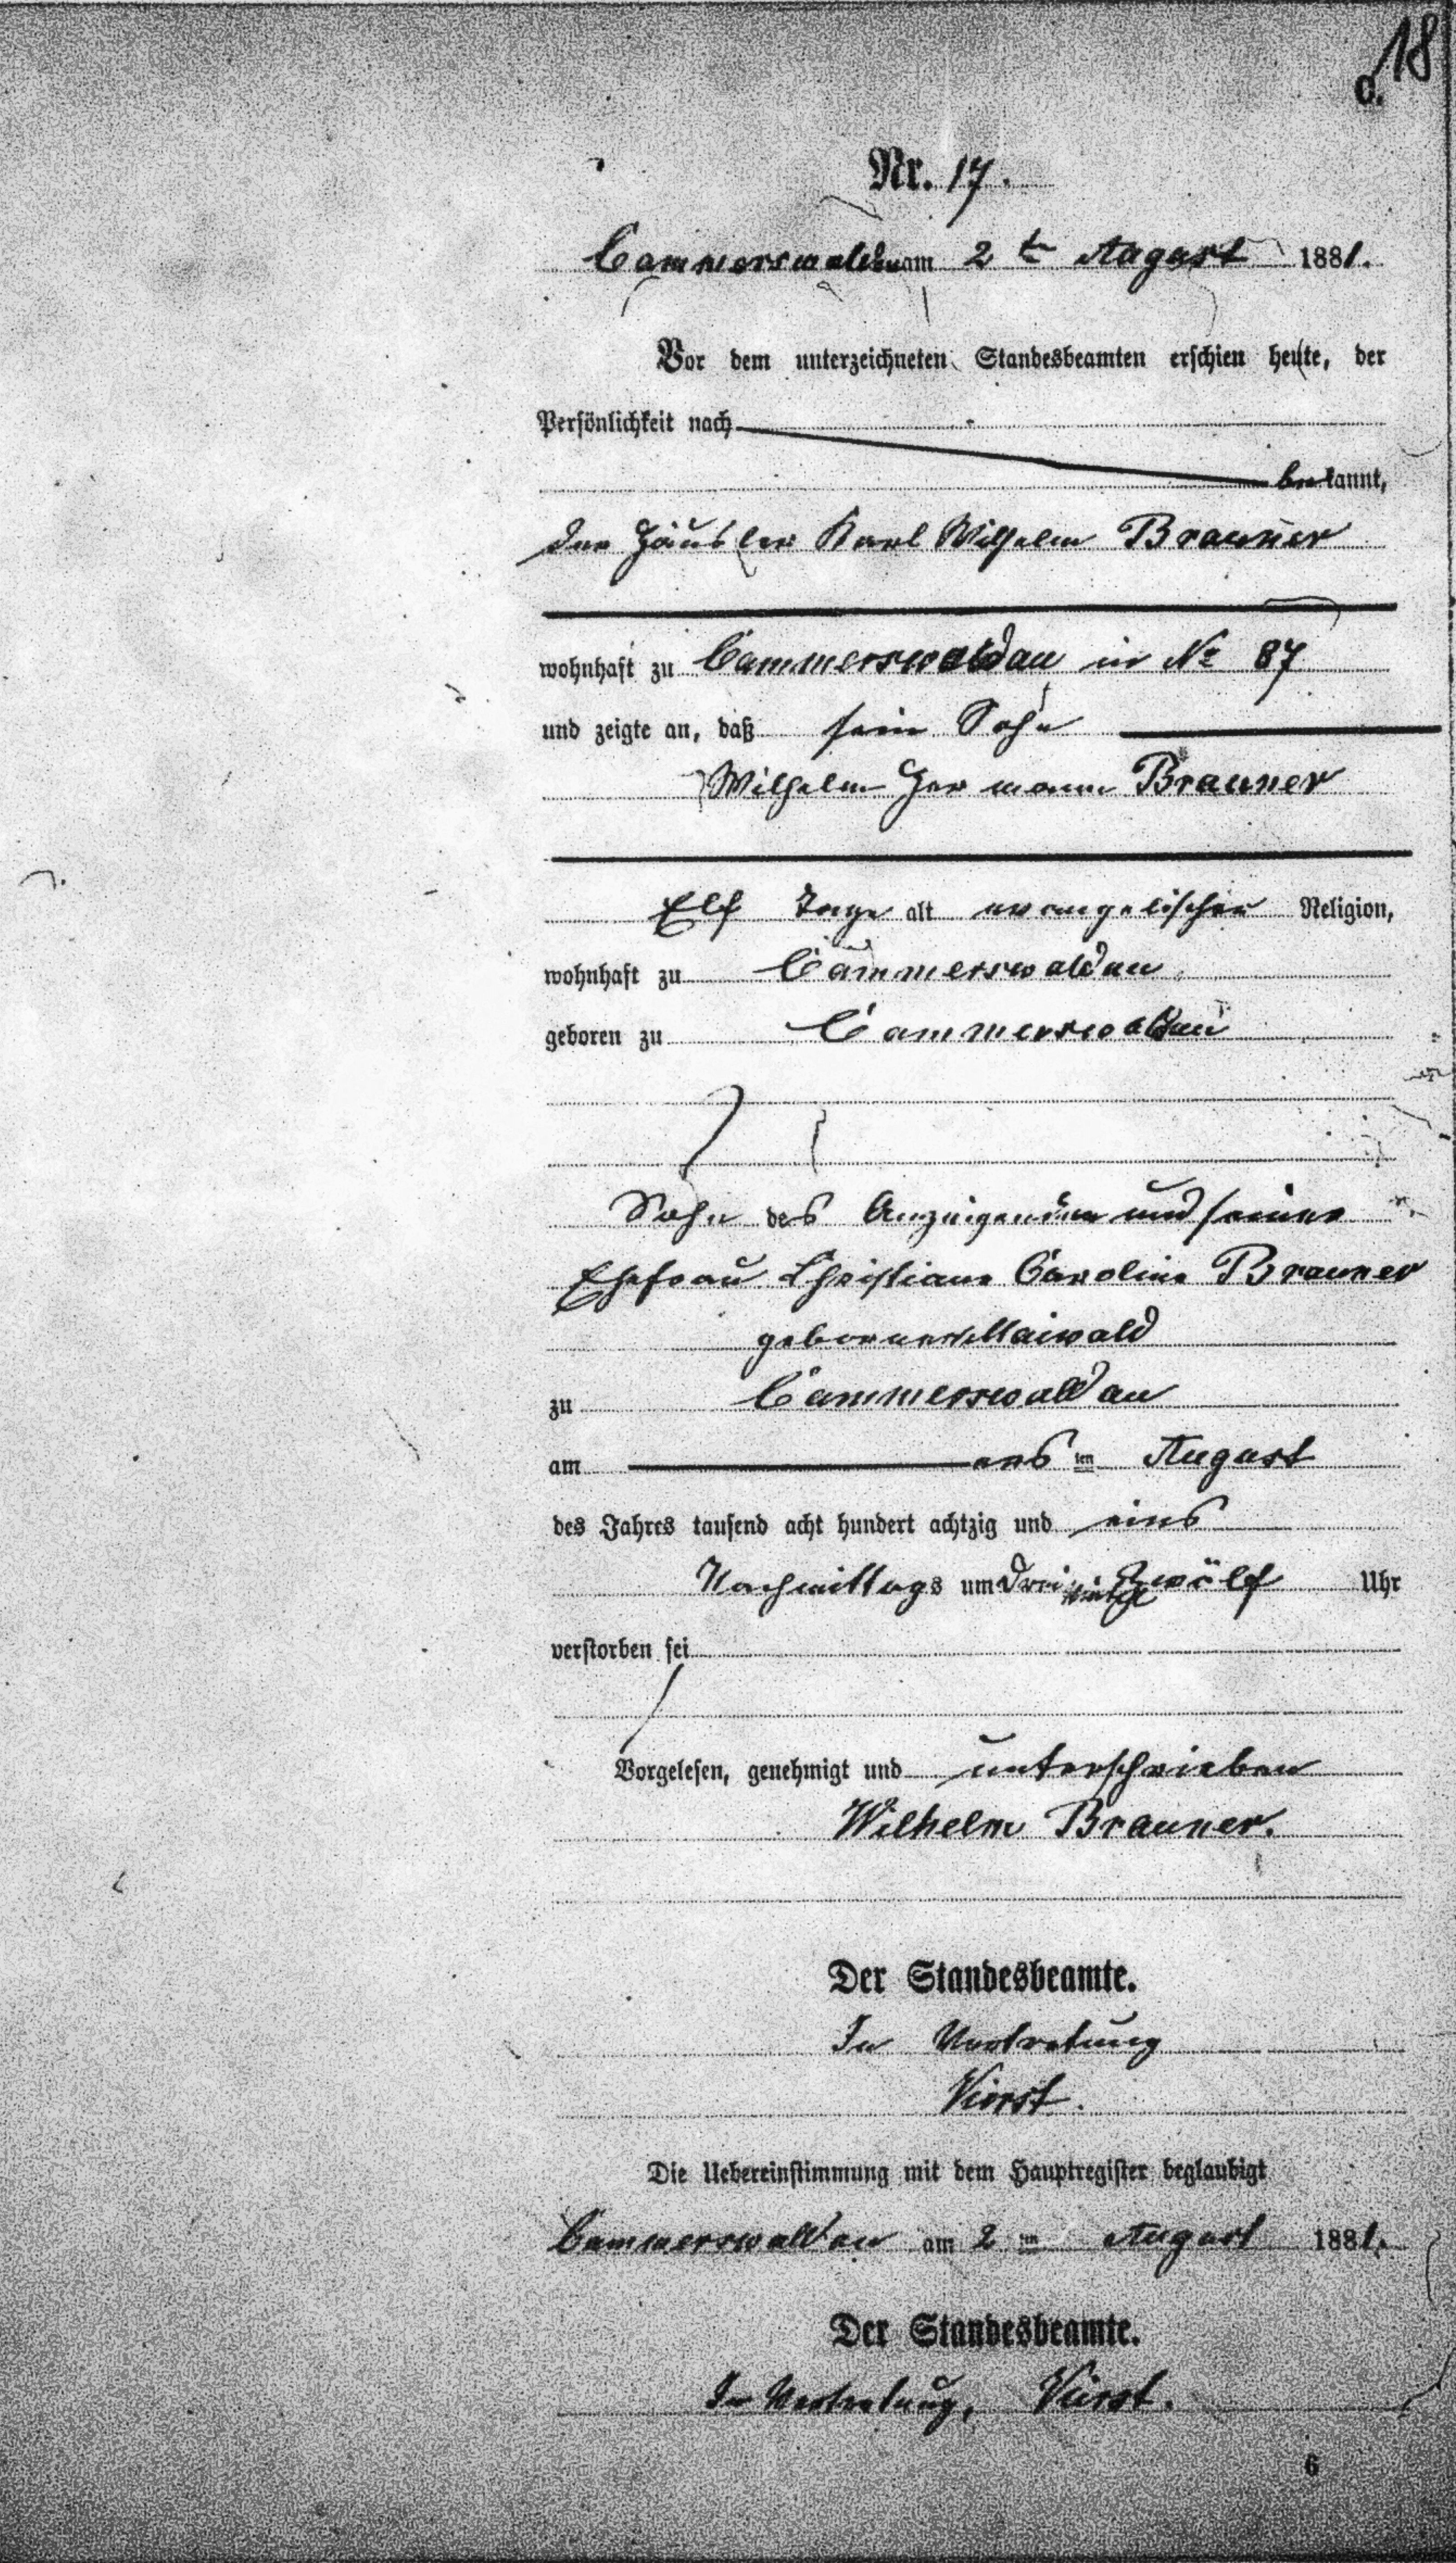 18
C.
Nr. 17.
Cammerswaldau am 2 ten August 1881.
Vor dem unterzeichneten Standesbeamten erschien heute, der
Persönlichkeit nach
bekannt,
der Häusler Karl Wilhelm Brauner
wohnhaft zu Cammerswaldau in No 87
und zeigte an, daß sein Sohn
Wilhelm Hermann Brauner
Elf Tage alt evangelischer Religion,
wohnhaft zu Cammerswaldau
geboren zu Cammerswaldau
Sohn des Anzeigenden und seiner
Ehefrau Christiane Caroline Brauner
geborner Maiwald
zu Cammerswaldau
am ersten August
des Jahres tausend acht hundert achtzig und eins
Nachmittags um drei viertel Zwölf Uhr
verstorben sei
Vorgelesen, genehmigt und unterschrieben
Wilhelm Brauner.
Der Standesbeamte.
In Vertretung
Die Uebereinstimmung mit dem Hauptregister beglaubigt
Cammerswaldau am 2 ten August 1881.
Der Standesbeamte.
In Vertretung,
6